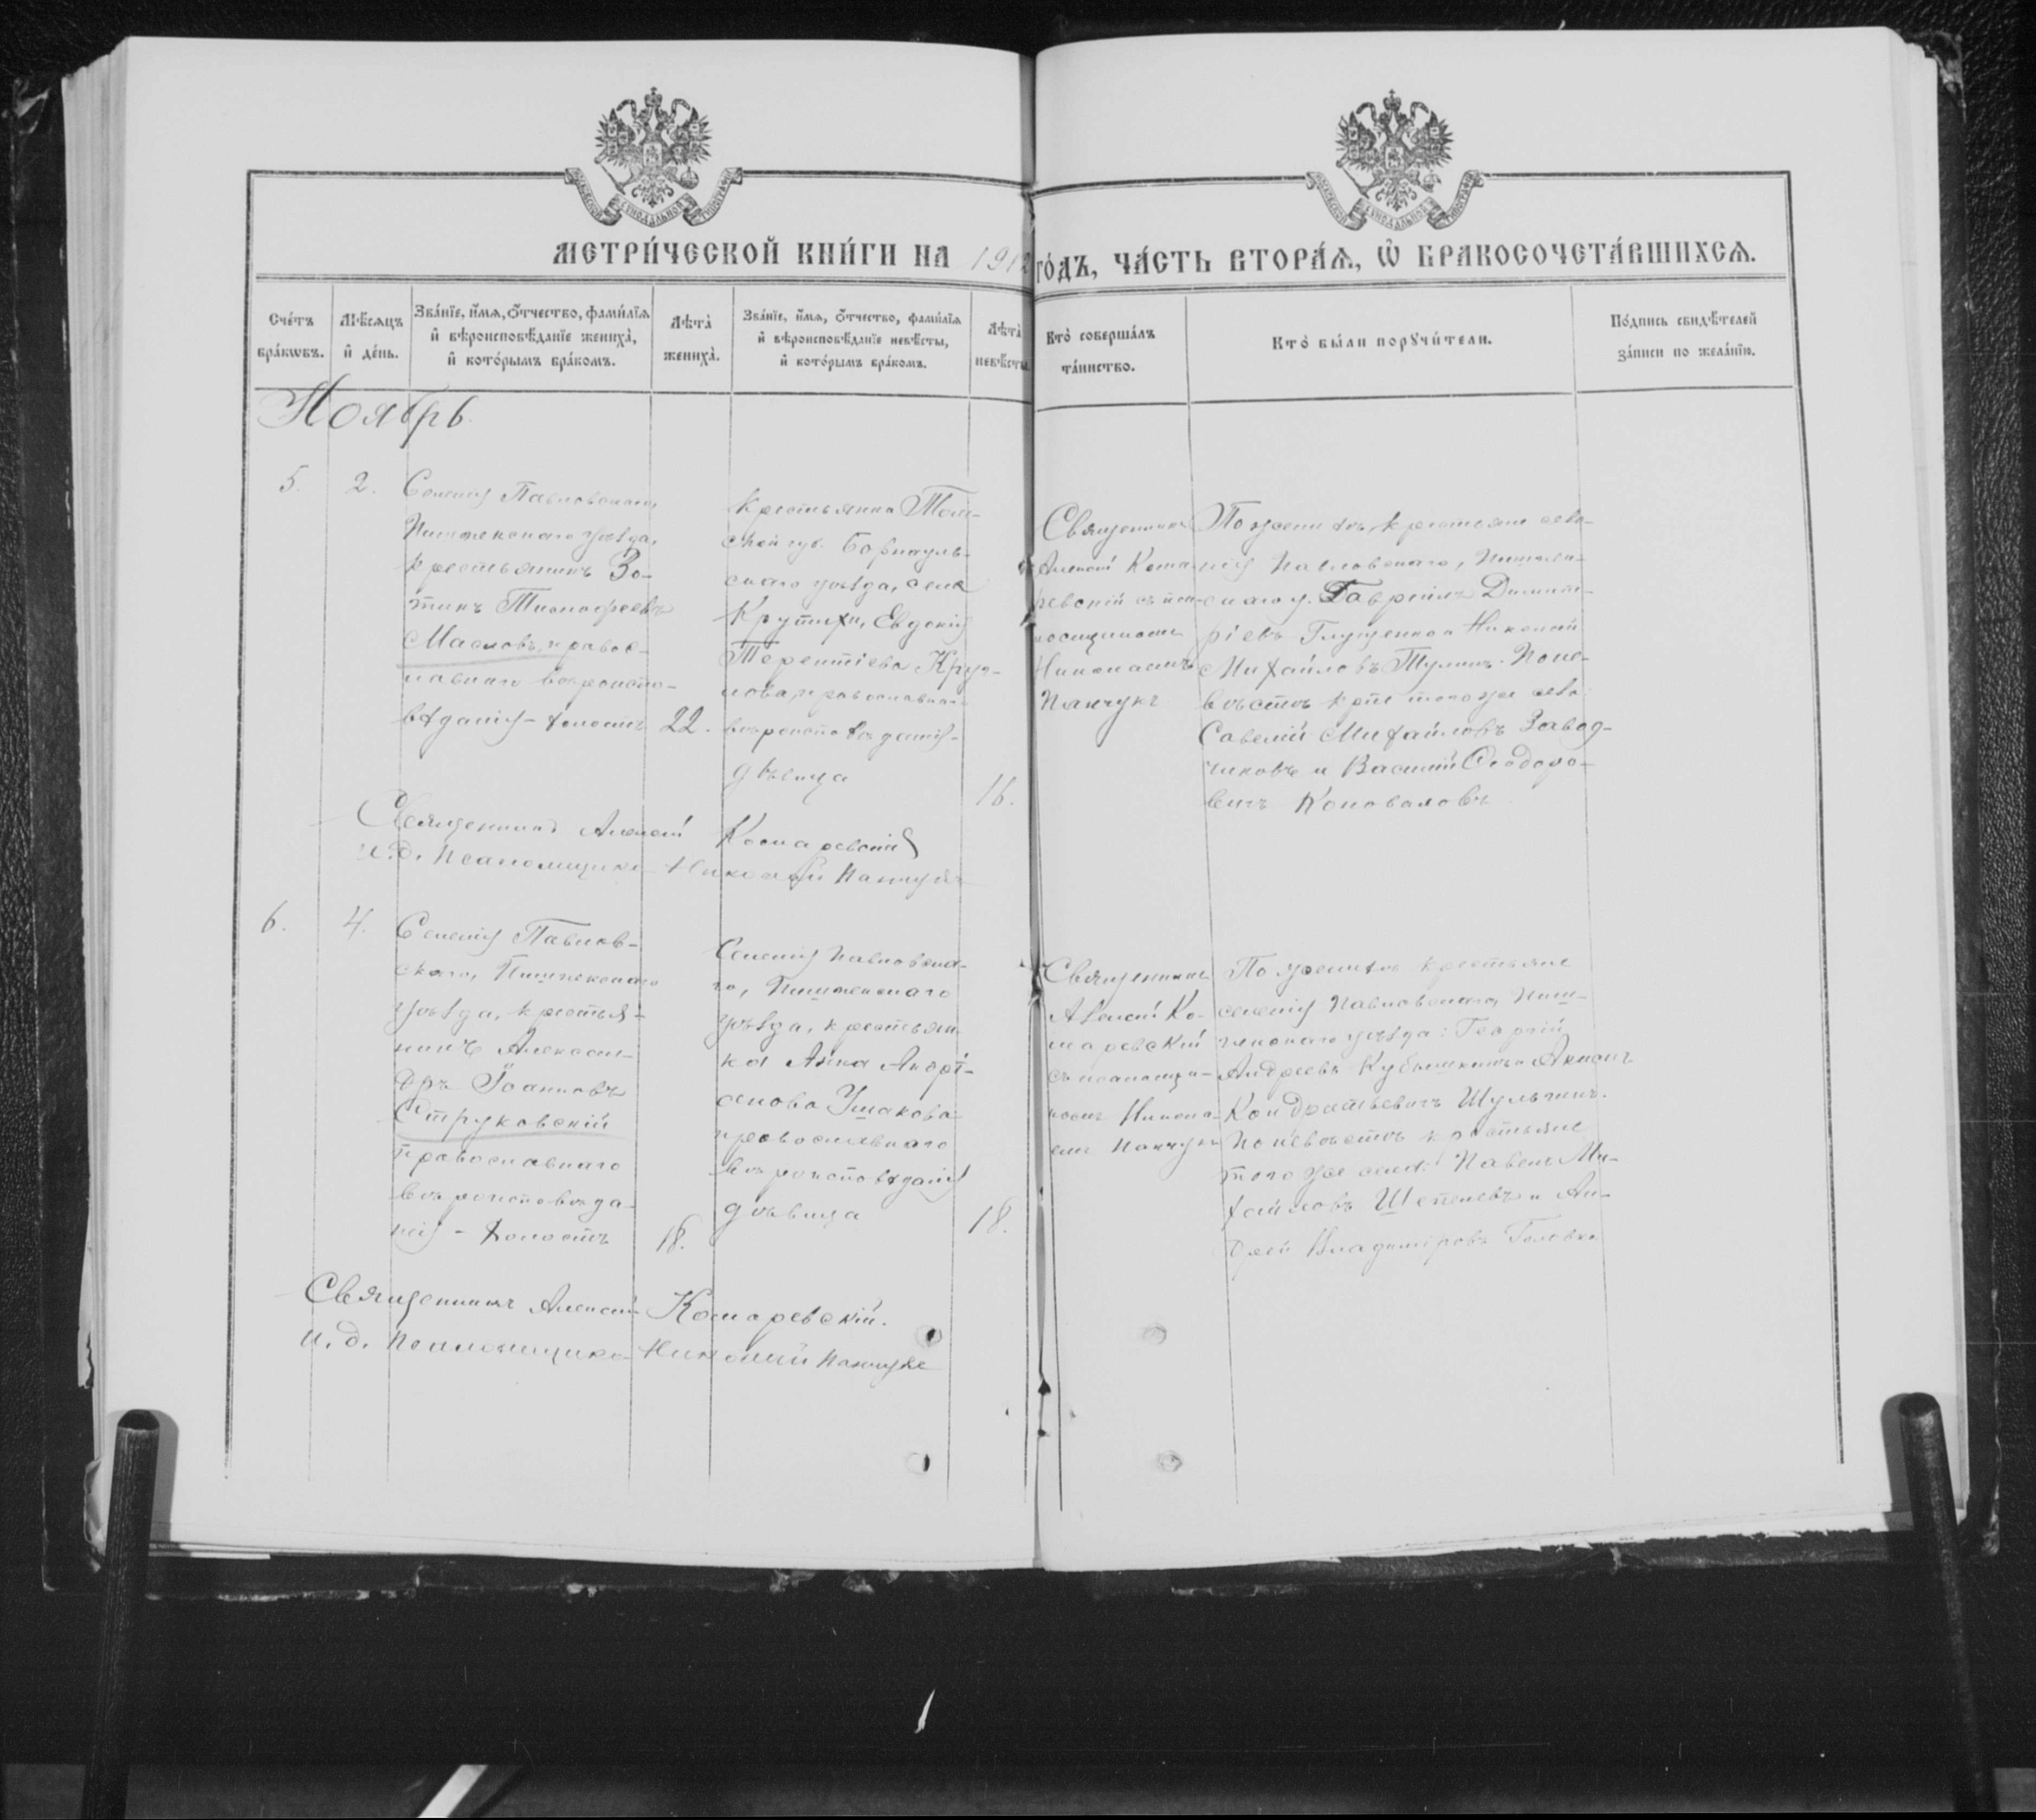 МОСКОВСКОЙ СѴНОДАЛЬНОЙ ТИПОГРАФІИ
МОСКОВСКОЙ СѴНОДАЛЬНОЙ ТИПОГРАФІИ
МЕТРИ́ЧЕСКОЙ КНИ́ГИ НА 1912 ГО́ДЪ, ЧА́СТЬ ВТОРА́Ѧ, Ѽ БРАКОСОЧЕТА́ВШИХСѦ.
Сче́тъ бра́кѡвъ.
Мѣ́сѧцъ и҆ де́нь.
Зва́нїе, и҆́мѧ, ѻ҆́тчество, фами́лїѧ
и҆ вѣроисповѣ́данїе жениха̀,
и҆ кото́рымъ бра́комъ.
Лѣта̀ жениха̀.
Зва́нїе, и҆́мѧ, ѻ҆́тчество, фами́лїѧ
и҆ вѣроисповѣ́данїе невѣ́сты,
и҆ кото́рымъ бра́комъ.
Лѣта̀ невѣ́сты.
Кто̀ соверша́лъ
та́инство.
Кто̀ бы́ли порꙋчи́тели.
По́дпись свидѣ́телей
за́писи по жела́нїю.
Ноябрь.
5.
2.
Селенія Павловскаго,
Пишпекскаго уѣзда,
крестьянинъ Зо-
тикъ Тимофеевъ
Масловъ, правос-
лавнаго вѣроиспо-
вѣданія - холостъ
22.
Крестьянка Том-
ской губ. Барнауль-
скаго уѣзда, села
Крутихи, Евдокія
Терентіева Круг-
лова, православнаго
вѣроисповѣданія -
дѣвица
16.
Священникъ
Алексѣй Кома-
ревскій съ пса-
ломщикомъ
Николаемъ
Панчукъ
По женихѣ, крестьяне селе-
нія Павловскаго, Пишпек-
скаго у. Гавріилъ Димит-
ріевъ Глущенко и Николай
Михайловъ Тулинъ. По не-
вѣстѣ крте того же села
Савелій Михайловъ Завод-
чиковъ и Василій Ѳеодоро-
вичъ Коноваловъ
Священникъ Алексѣй Комаревскій
и.д. Псаломщика Николай Панчукъ
6.
4.
Селенія Павлов-
скаго, Пишпекскаго
уѣзда, крестья-
нинъ Алексан-
дръ Іоанновъ
Струковскій
православнаго
вѣроисповѣда-
нія - холостъ
18.
Селенія Павловска-
го, Пишпекскаго
уѣзда, крестьян-
ка Анна
Ушакова
православнаго
вѣроисповѣданія
дѣвица
18.
Священникъ
Алексѣй Ко-
маревскій
съ псаломщи-
комъ Никола-
емъ Панчукъ
По женихѣ крестьяне
селенія Павловскаго, Пиш-
пекскаго уѣзда: Георгій
Андреевъ Кубышкинъ и
Кондратьевичъ Шульгинъ.
По невѣстѣ крестьяне
того же села: Павелъ Ми-
хайловъ Шепелевъ и Ан-
дрей Владиміровъ Головко
Священникъ Алексѣй Комаревскій.
и.д. Псаломщика Николай Панчукъ